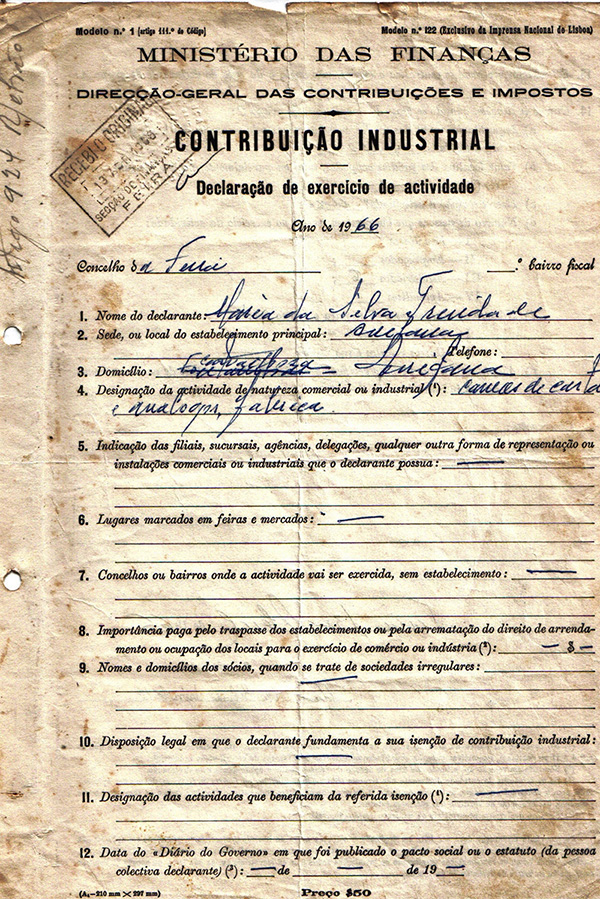 Modelo n.º 1 (artigo 111.º do Código) Modelo n.º 122 (Exclusivo da Imprensa Nacional de Lisboa)
MINISTÉRIO DAS FINANÇAS
DIRECÇÃO-GERAL DAS CONTRIBUIÇÕES E IMPOSTOS
CONTRIBUIÇÃO INDUSTRIAL
Declaração de exercício de actividade
RECEBI O ORIGINAL
SECÇÃO DE
FEIRA
Ano de 1966
Concelho da Feira .º bairro fiscal
1. Nome do declarante: Maria da Silva Trindade
2. Sede, ou local do estabelecimento principal:
Telefone:
3. Domicílio:
4. Designação da actividade de natureza comercial ou industrial (¹): caixas de
fabrica
5. Indicação das filiais, sucursais, agências, delegações, qualquer outra forma de representação ou
instalações comerciais ou industriais que o declarante possua: —
6. Lugares marcados em feiras e mercados: —
7. Concelhos ou bairros onde a actividade vai ser exercida, sem estabelecimento: —
8. Importância paga pelo traspasse dos estabelecimentos ou pela arrematação do direito de arrenda-
mento ou ocupação dos locais para o exercício de comércio ou indústria (²): — $ —
9. Nomes e domicílios dos sócios, quando se trate de sociedades irregulares:
—
10. Disposição legal em que o declarante fundamenta a sua isenção de contribuição industrial:
—
11. Designação das actividades que beneficiam da referida isenção (¹): —
12. Data do «Diário do Governo» em que foi publicado o pacto social ou o estatuto (da pessoa
colectiva declarante) (³): — de — de 19 —
(A₄—210 mm × 297 mm) Preço $50